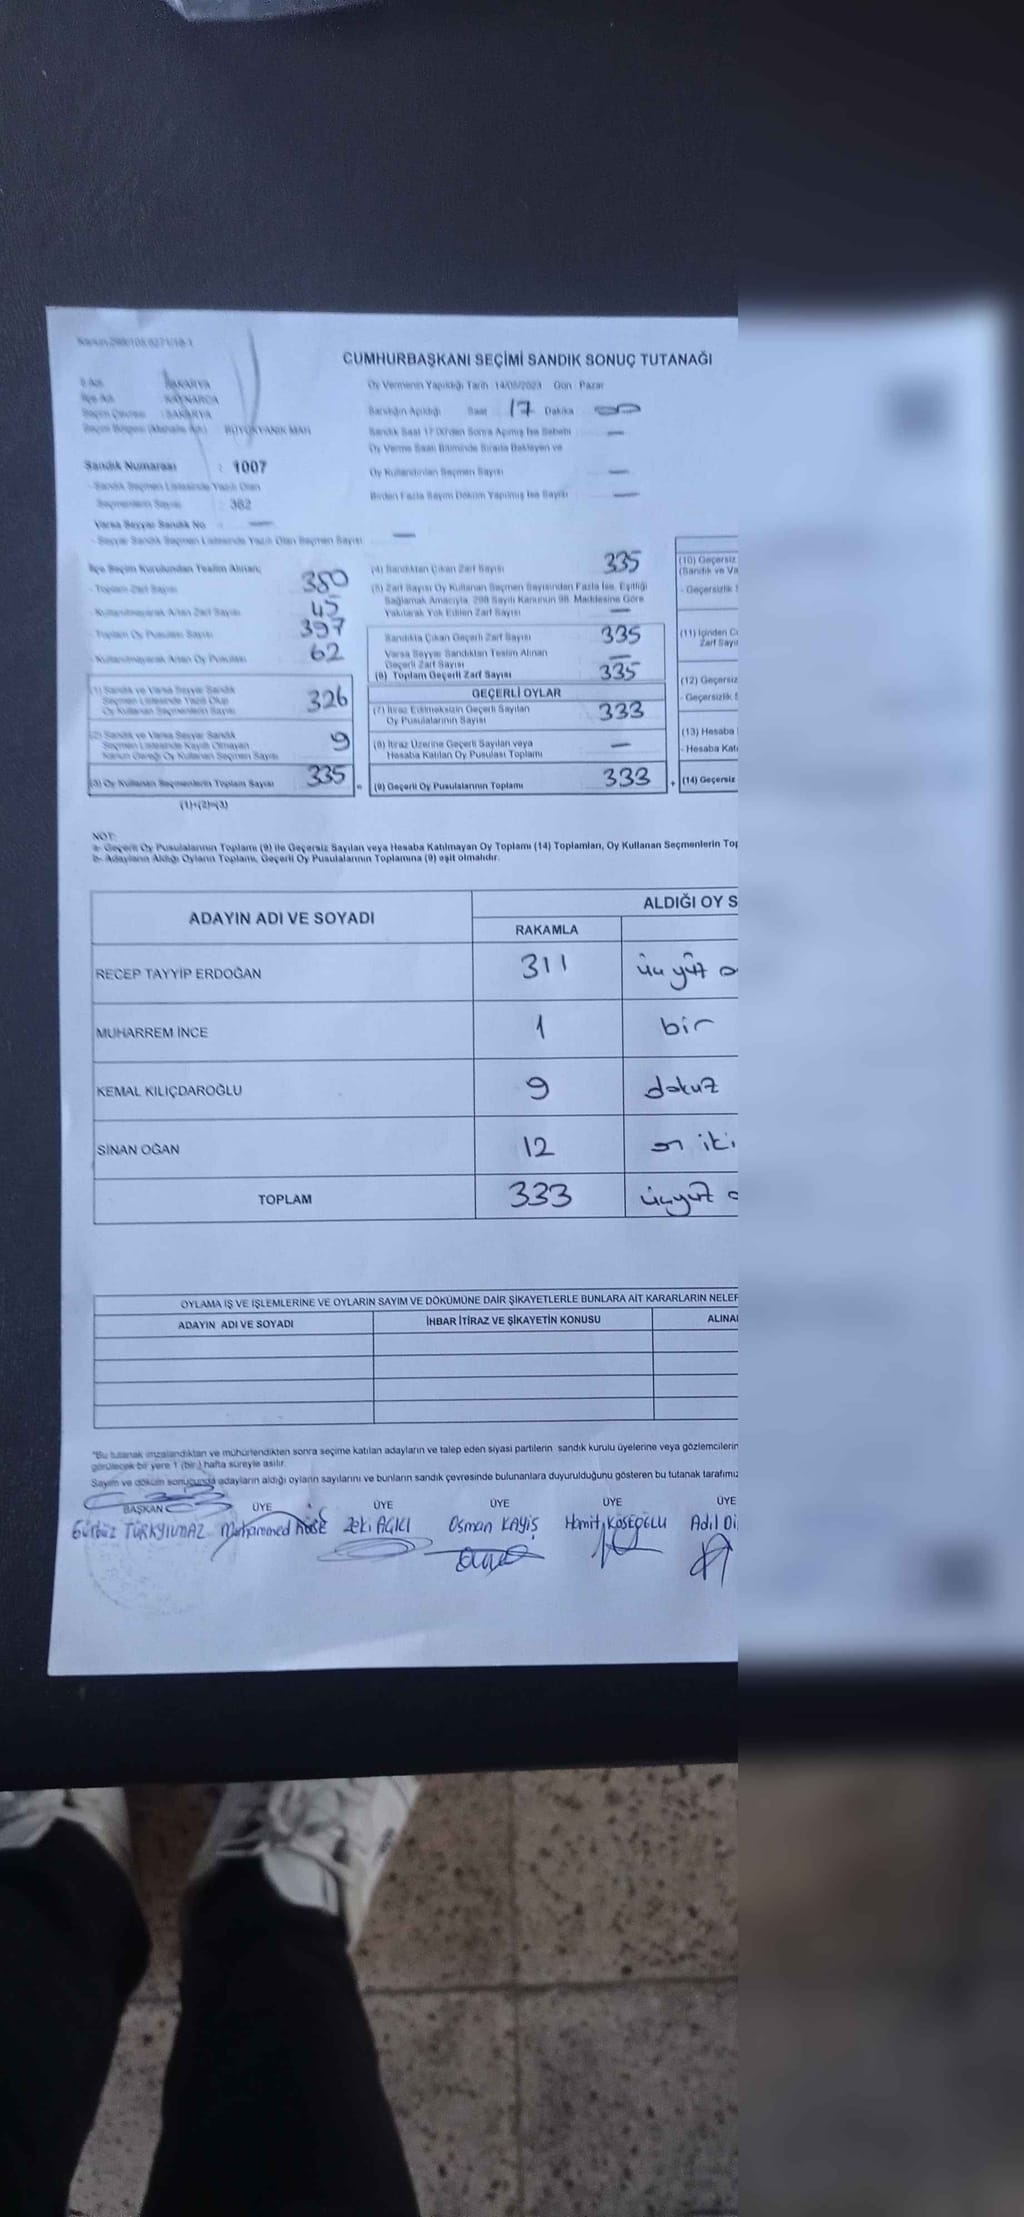 CUMHURBAŞKANI SEÇİMİ SANDIK SONUÇ TUTANAĞI
İli Adı : SAKARYA
İlçe Adı : KAYNARCA
Seçim Çevresi : SAKARYA
Seçim Bölgesi (Mahalle Adı) : BÜYÜKYANIK MAH
Sandık Numarası : 1007
Sandık Seçmen Listesinde Yazılı Olan
Seçmenlerin Sayısı : 362
Varsa Seyyar Sandık No —
Seyyar Sandık Seçmen Listesinde Yazılı Olan Seçmen Sayısı —
Oy Vermenin Yapıldığı Tarih 14/05/2023 Gün : Pazar
Sandığın Açıldığı Saat 17 Dakika 00
Sandık Saat 17:00'den Sonra Açılmış İse Sebebi —
Oy Verme Saati Bitiminde Sırada Bekleyen ve
Oy Kullandırılan Seçmen Sayısı —
Birden Fazla Sayım Döküm Yapılmış İse Sayısı —
İlçe Seçim Kurulundan Teslim Alınan;
- Toplam Zarf Sayısı 380
- Kullanılmayarak Artan Zarf Sayısı 45
- Toplam Oy Pusulası Sayısı 397
- Kullanılmayarak Artan Oy Pusulası 62
(1) Sandık ve Varsa Seyyar Sandık
Seçmen Listesinde Yazılı Olup
Oy Kullanan Seçmenlerin Sayısı 326
(2) Sandık ve Varsa Seyyar Sandık
Seçmen Listesinde Kayıtlı Olmayan
Kanun Gereği Oy Kullanan Seçmen Sayısı 9
(3) Oy Kullanan Seçmenlerin Toplam Sayısı 335 =
(1)+(2)=(3)
(4) Sandıktan Çıkan Zarf Sayısı 335
(5) Zarf Sayısı Oy Kullanan Seçmen Sayısından Fazla İse, Eşitliği
Sağlamak Amacıyla, 298 Sayılı Kanunun 98. Maddesine Göre
Yakılarak Yok Edilen Zarf Sayısı —
Sandıkta Çıkan Geçerli Zarf Sayısı 335
Varsa Seyyar Sandıktan Teslim Alınan
Geçerli Zarf Sayısı —
(6) Toplam Geçerli Zarf Sayısı 335
GEÇERLİ OYLAR
(7) İtiraz Edilmeksizin Geçerli Sayılan
Oy Pusulalarının Sayısı 333
(8) İtiraz Üzerine Geçerli Sayılan veya
Hesaba Katılan Oy Pusulası Toplamı —
(9) Geçerli Oy Pusulalarının Toplamı 333 +
(10) Geçersiz
(Sandık ve Va
- Geçersizlik
(11) İçinden
Zarf Sayı
(12) Geçersiz
- Geçersizlik
(13) Hesaba
- Hesaba Kat
(14) Geçersiz
NOT:
a- Geçerli Oy Pusulalarının Toplamı (9) ile Geçersiz Sayılan veya Hesaba Katılmayan Oy Toplamı (14) Toplamları, Oy Kullanan Seçmenlerin Top
b- Adayların Aldığı Oyların Toplamı, Geçerli Oy Pusulalarının Toplamına (9) eşit olmalıdır.
ADAYIN ADI VE SOYADI
ALDIĞI OY S
RAKAMLA
RECEP TAYYİP ERDOĞAN 311 üç yüz o
MUHARREM İNCE 1 bir
KEMAL KILIÇDAROĞLU 9 dokuz
SİNAN OĞAN 12 on iki
TOPLAM 333 üçyüz o
OYLAMA İŞ VE İŞLEMLERİNE VE OYLARIN SAYIM VE DÖKÜMÜNE DAİR ŞİKAYETLERLE BUNLARA AİT KARARLARIN NELER
ADAYIN ADI VE SOYADI İHBAR İTİRAZ VE ŞİKAYETİN KONUSU ALINA
"Bu tutanak imzalandıktan ve mühürlendikten sonra seçime katılan adayların ve talep eden siyasi partilerin sandık kurulu üyelerine veya gözlemcilerin
görülecek bir yere 1 (bir) hafta süreyle asılır.
Sayım ve döküm sonucunda adayların aldığı oyların sayılarını ve bunların sandık çevresinde bulunanlara duyurulduğunu gösteren bu tutanak tarafımız
BAŞKAN ÜYE ÜYE ÜYE ÜYE ÜYE
Gürbüz TÜRKYILMAZ Muhammed KÖSE Zeki AĞICI Osman KAYIŞ Hamit KÖSEOĞLU Adil Di